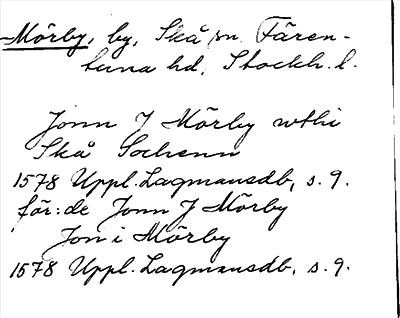 Mörby, by, Skå sn. Fären-
tuna hd, Stockh. l.
Jonn J Mörby wthi
Skå Sochenn
1578 Uppl. Lagmansdb, s. 9.
för: de Jonn J Mörby
Jon i Mörby
1578 Uppl. Lagmansdb, s. 9.